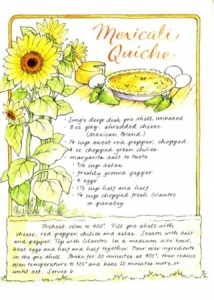 Mexicali
Quiche
· Single deep dish pie shell, unbaked
· 8 oz pkg shredded cheese
(Mexican Blend)
· ¼ cup sweet red pepper, chopped
· 4 oz chopped green chilies
· margarita salt to taste
· ¾ cup salsa
· freshly ground pepper
· 4 eggs
· 1½ cup half and half
· ¼ cup chopped fresh cilantro
or parsley
Preheat oven to 400°. Fill pie shell with
cheese, red pepper, chilies and salsa. Season with salt
and pepper. Top with cilantro. In a medium size bowl,
beat eggs and half and half together. Pour over ingredients
in the pie shell. Bake for 20 minutes at 400°, then reduce
oven temperature to 325° and bake 20 minutes more, or
until set. Serves 6